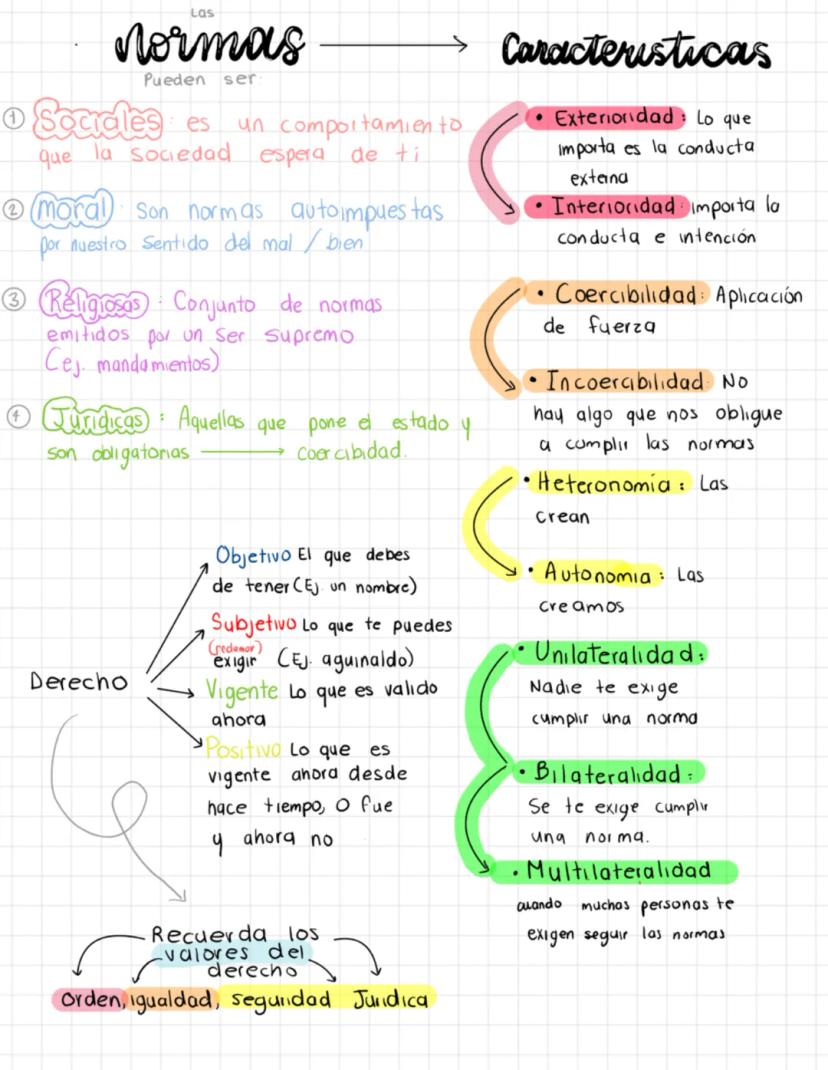 Las
normas
Pueden ser:
① Sociales: es un comportamiento
que la sociedad espera de ti
② moral: Son normas autoimpuestas
por nuestro sentido del mal / bien
③ Religiosas: Conjunto de normas
emitidos por un ser supremo
(ej. mandamientos)
④ Jurídicas: Aquellas que pone el estado y
son obligatorias → coercibidad.
Características
• Exterioridad: Lo que
importa es la conducta
externa
• Interioridad: importa la
conducta e intención
• Coercibilidad: Aplicación
de fuerza
• Incoercibilidad: No
hay algo que nos obligue
a cumplir las normas
• Heteronomía: Las
crean
• Autonomia: Las
creamos
• Unilateralidad:
Nadie te exige
cumplir una norma
• Bilateralidad:
Se te exige cumplir
una norma.
• Multilateralidad
cuando muchas personas te
exigen seguir las normas
Derecho
Objetivo El que debes
de tener (Ej. un nombre)
Subjetivo Lo que te puedes
(reclamar)
exigir (Ej. aguinaldo)
Vigente Lo que es valido
ahora
Positivo Lo que es
vigente ahora desde
hace tiempo, o fue
y ahora no
Recuerda los
valores del
derecho
Orden, igualdad, seguridad Jurídica